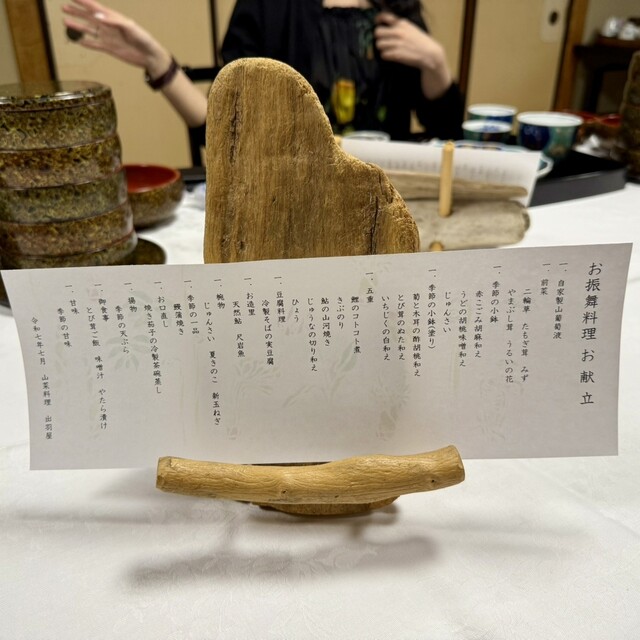 お振舞料理 お献立
一、自家製山葡萄液
一、前菜
二輪草 たもぎ茸 みず
やまぶし茸 うるいの花
一、季節の小鉢
赤こごみ胡麻和え
うどの胡桃味噌和え
じゅんさい
一、季節の小鉢(塗り)
筍と木耳の酢胡桃和え
とび茸のぬた和え
いちじくの白和え
一、五重
鯉のコトコト煮
きぶのり
鮎の山河焼き
じゅうなの切り和え
ひょう
一、豆腐料理
冷製そばの実豆腐
一、お造里
天然鮎 尺岩魚
一、椀物
じゅんさい 夏きのこ 新玉ねぎ
一、季節の一品
鰻蒲焼き
一、お口直し
焼き茄子の冷製茶碗蒸し
一、揚物
季節の天ぷら
一、御食事
とび茸ご飯 味噌汁 やたら漬け
一、甘味
季節の甘味
令和七年七月 山菜料理 出羽屋